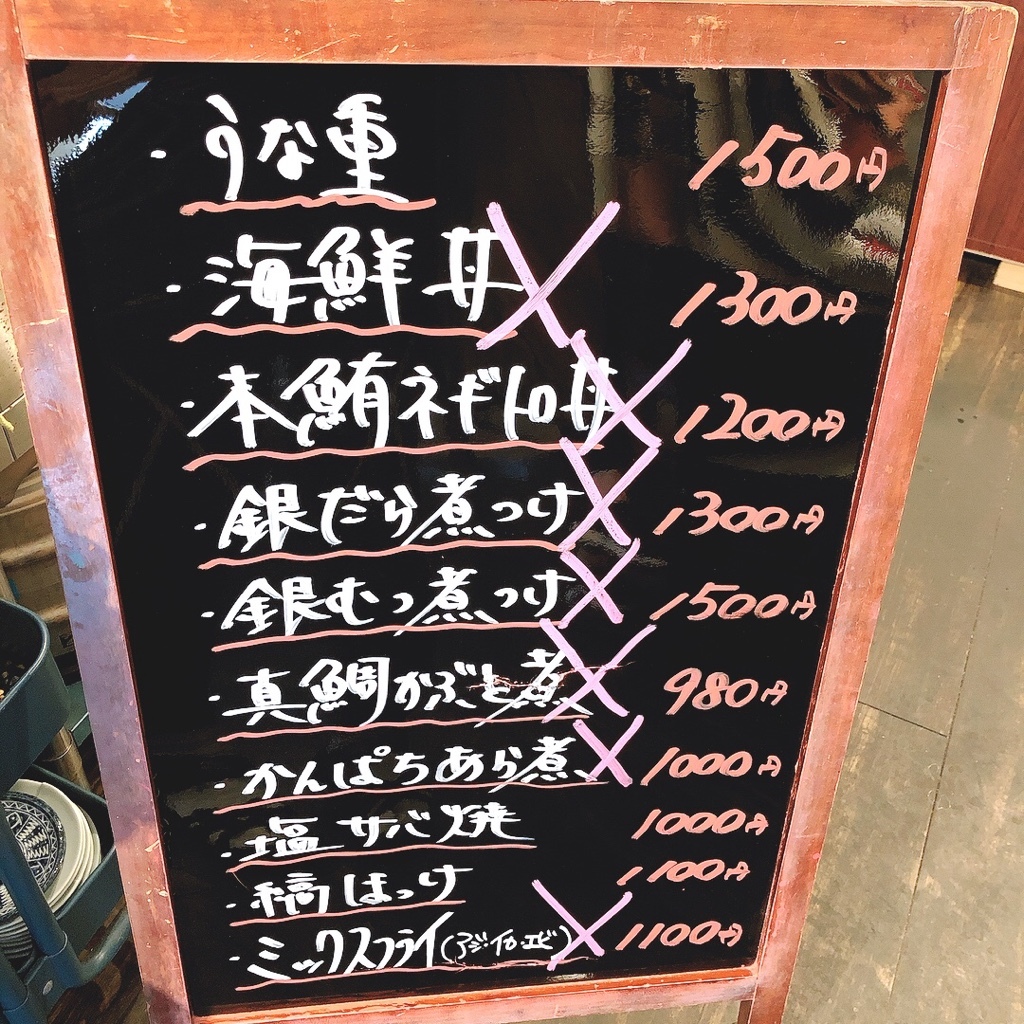 ・うな重 1500円
・海鮮丼 1300円
・本鮪ネギトロ丼 1200円
・銀だら煮つけ 1300円
・銀むつ煮つけ 1500円
・真鯛かぶと煮 980円
・かんぱちあら煮 1000円
・塩サバ焼 1000円
・縞ほっけ 1100円
・ミックスフライ(アジ・イカ・エビ) 1100円